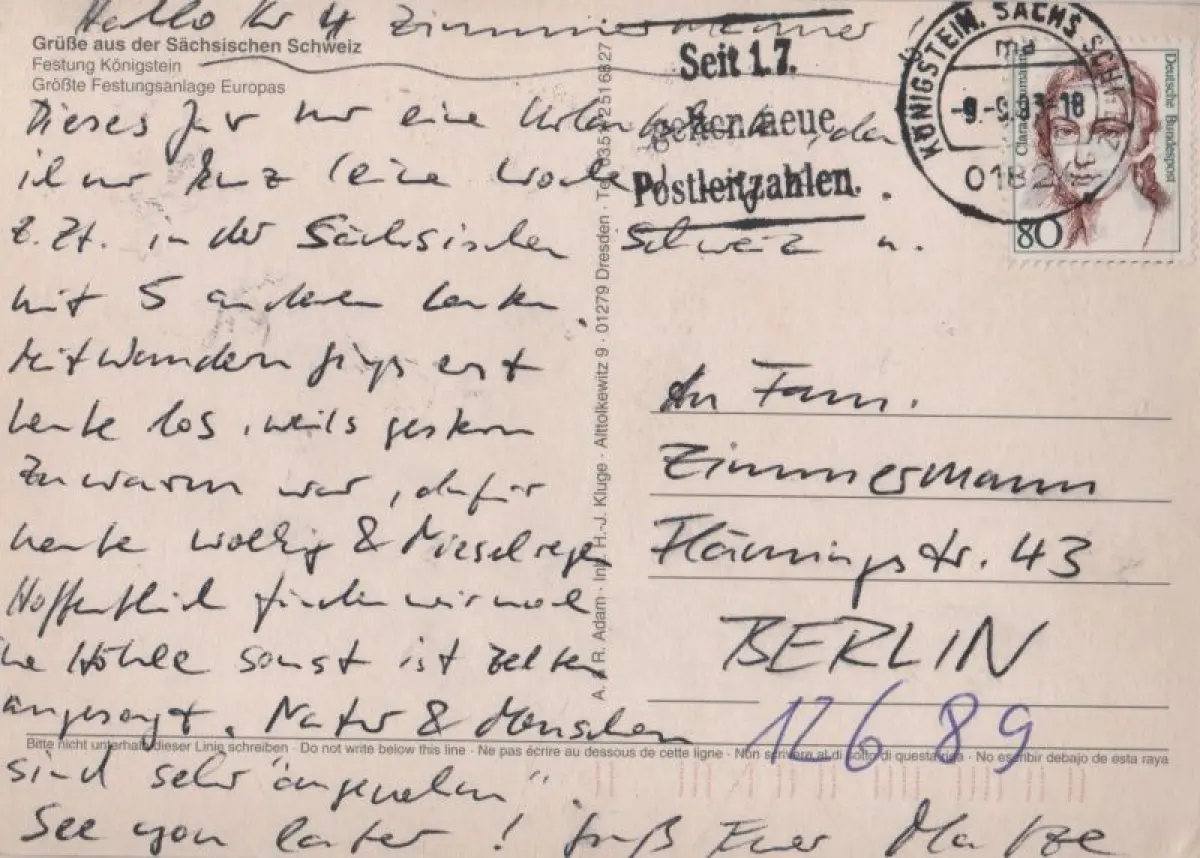 Hallo Ihr 4 Zimmermänner!
Grüße aus der Sächsischen Schweiz
Festung Königstein
Größte Festungsanlage Europas
Dieses Jar nur eine Urlaubskarte, da
ich nur kurz (eine Woche)
z.Zt. in der Sächsischen Schweiz u.
mit 5 anderen Leuten.
Mit Wandern gings erst
heute los, weils gestern
zu warm war, dafür
heute wolkig & Nieselregen
Hoffentlich finden wir noch
ne Höhle sonst ist Zelten
angesagt. Natur & Menschen
sind sehr "angenehm".
See you later! Gruß Euer Matze
Seit 1.7.
gelten neue
Postleitzahlen.
KÖNIGSTEIN, SÄCHS SCHWEIZ
ma
-9.-9.93-18
01824
Deutsche Bundespost
Clara Schumann
80
A. u. R. Adam · Inh. H.-J. Kluge · Alttolkewitz 9 · 01279 Dresden · Tel. 0351/2516827
An Fam.
Zimmermann
Flämingstr. 43
BERLIN
12689
Bitte nicht unterhalb dieser Linie schreiben · Do not write below this line · Ne pas écrire au dessous de cette ligne · Non scrivere al di sotto di questa riga · No escribir debajo de esta raya